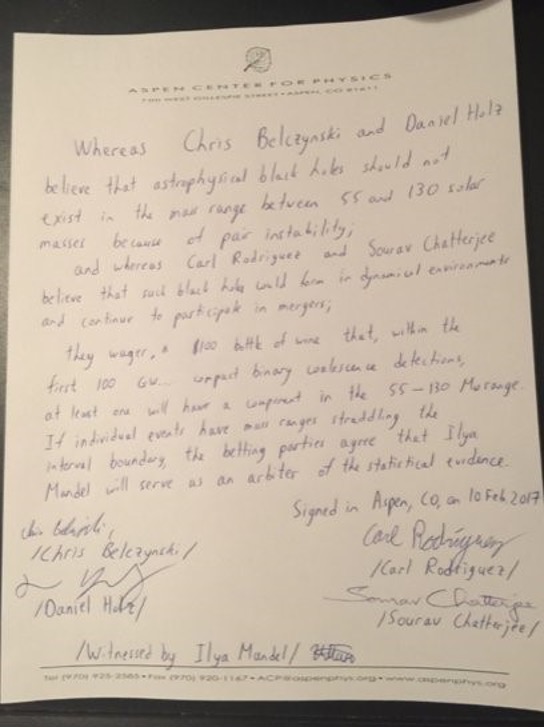 ASPEN CENTER FOR PHYSICS
700 WEST GILLESPIE STREET • ASPEN, CO 81611
Whereas Chris Belczynski and Daniel Holz
believe that astrophysical black holes should not
exist in the mass range between 55 and 130 solar
masses because of pair instability;
and whereas Carl Rodriguez and Sourav Chatterjee
believe that such black holes could form in dynamical environments
and continue to participate in mergers;
they wager, a $100 bottle of wine that, within the
first 100 GW compact binary coalescence detections,
at least one will have a component in the 55-130 M☉ range.
If individual events have mass ranges straddling the
interval boundary, the betting parties agree that Ilya
Mandel will serve as an arbiter of the statistical evidence.
Signed in Aspen, CO, on 10 Feb 2017
Chris Belczynski,
/Chris Belczynski/
/Daniel Holz/
Carl Rodriguez
/Carl Rodriguez/
Sourav Chatterjee
/Sourav Chatterjee/
/Witnessed by Ilya Mandel/
Tel (970) 925-2585 • Fax (970) 920-1167 • ACP@aspenphys.org • www.aspenphys.org